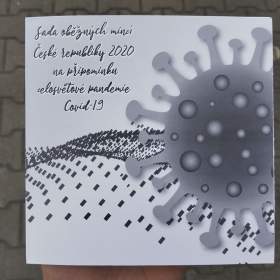 Sada oběžných mincí
České republiky 2020
na připomínku
celosvětové pandemie
Covid-19